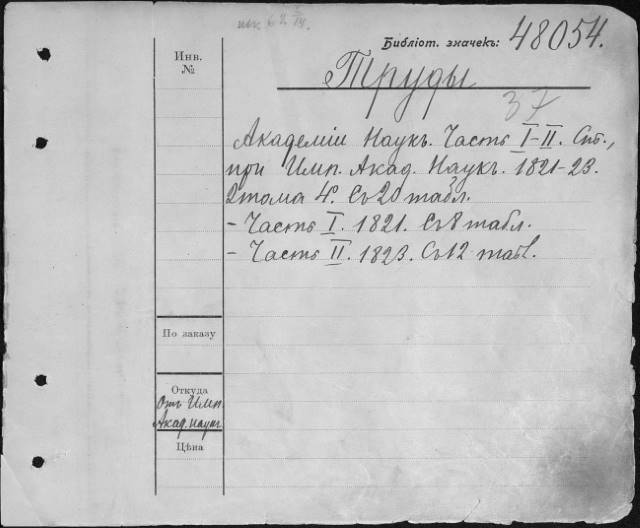 Библіот. значекъ: 48054.
Инв.
№
Труды
37
Академіи Наукъ. Часть I-II. Спб.,
при Имп. Акад. Наукъ. 1821-23.
2 тома 4°. Съ 20 табл.
- Часть I. 1821. Съ 8 табл.
- Часть II. 1823. Съ 12 табл.
По заказу
Откуда
Отъ Имп.
Акад. Наукъ
Цѣна